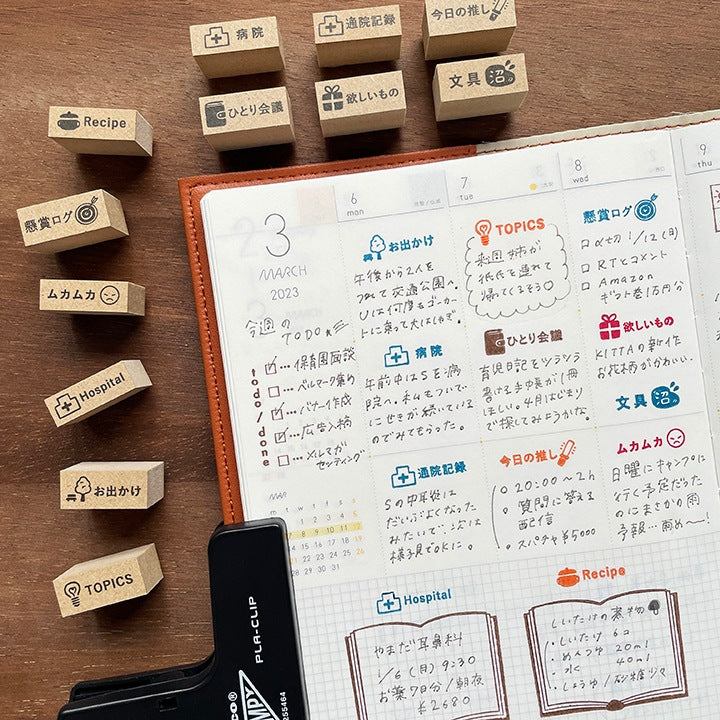 病院
通院記録
今日の推し
Recipe
ひとり会議
欲しいもの
文具沼
懸賞ログ
ムカムカ
Hospital
お出かけ
TOPICS
3
MARCH
2023
今週の
TODO
todo/done
…保育園面談
…ベルマーク集め
…バナー作成
…広告入稿
…メルマガ
センディング
MAR
6
mon
お出かけ
午後から2人を
つれて交通公園へ。
Uは何度もゴーカー
トに乗って大はしゃぎ。
病院
午前中はSを病
院へ。私もついで
にせきが続いている
のでみてもらった。
通院記録
Sの中耳炎は
だいぶよくなった
みたいで、次は
様子見でOKに。
7
tue
TOPICS
来週 姉が
甥氏を連れて
帰ってくるそう♡
ひとり会議
育児日記をツラツラ
書ける手中長が1冊
ほしい。4月はじまり
で探してみようかな。
今日の推し
・20:00〜2h
・質問に答える
配信
・スパチャ¥5000
8
wed
懸賞ログ
□ 〆切 1/12(日)
□ RTとコメント
□ Amazon
ギフト券1万円分
欲しいもの
KITTAの新作
お花柄がかわいい。
文具沼
ムカムカ
日曜にキャンプに
行く予定だった
のにまさかの雨
予報…雨め〜!
9
thu
Hospital
やまだ耳鼻科
1/6(月)9:30
お薬7日分/朝夜
¥2680
Recipe
しいたけの煮物
・しいたけ 6コ
・めんつゆ 20ml
・水 40ml
・しょうゆ/砂糖少々
PLA-CLIP
255464